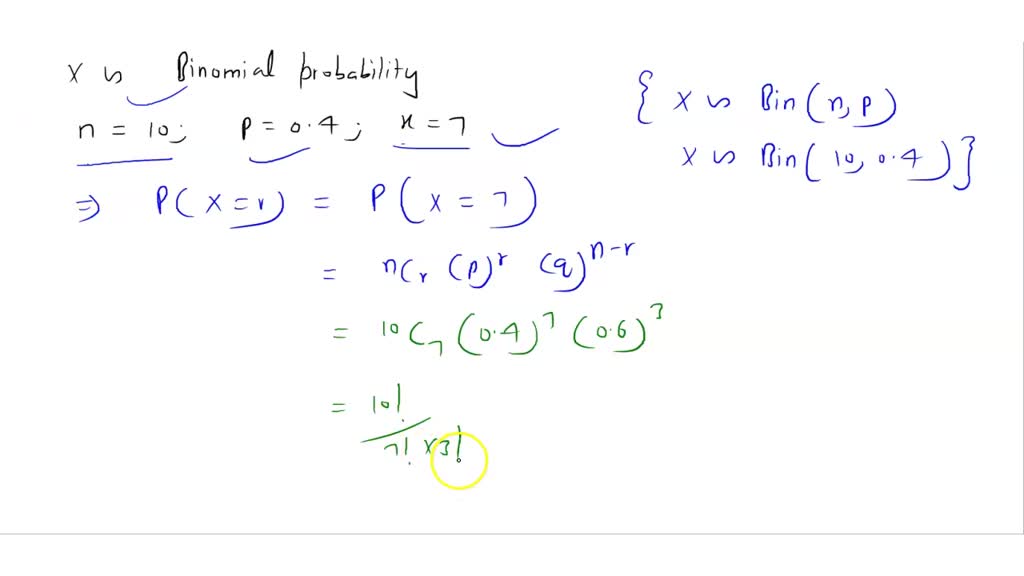 X ~ Binomial probability
n = 10; p = 0.4; x = 7
{ X ~ Bin(n, p)
X ~ Bin(10, 0.4) }
⇒ P(X = r) = P(X = 7)
= nCr (p)^r (q)^n-r
= 10C7 (0.4)^7 (0.6)^3
= 10!
7! × 3!